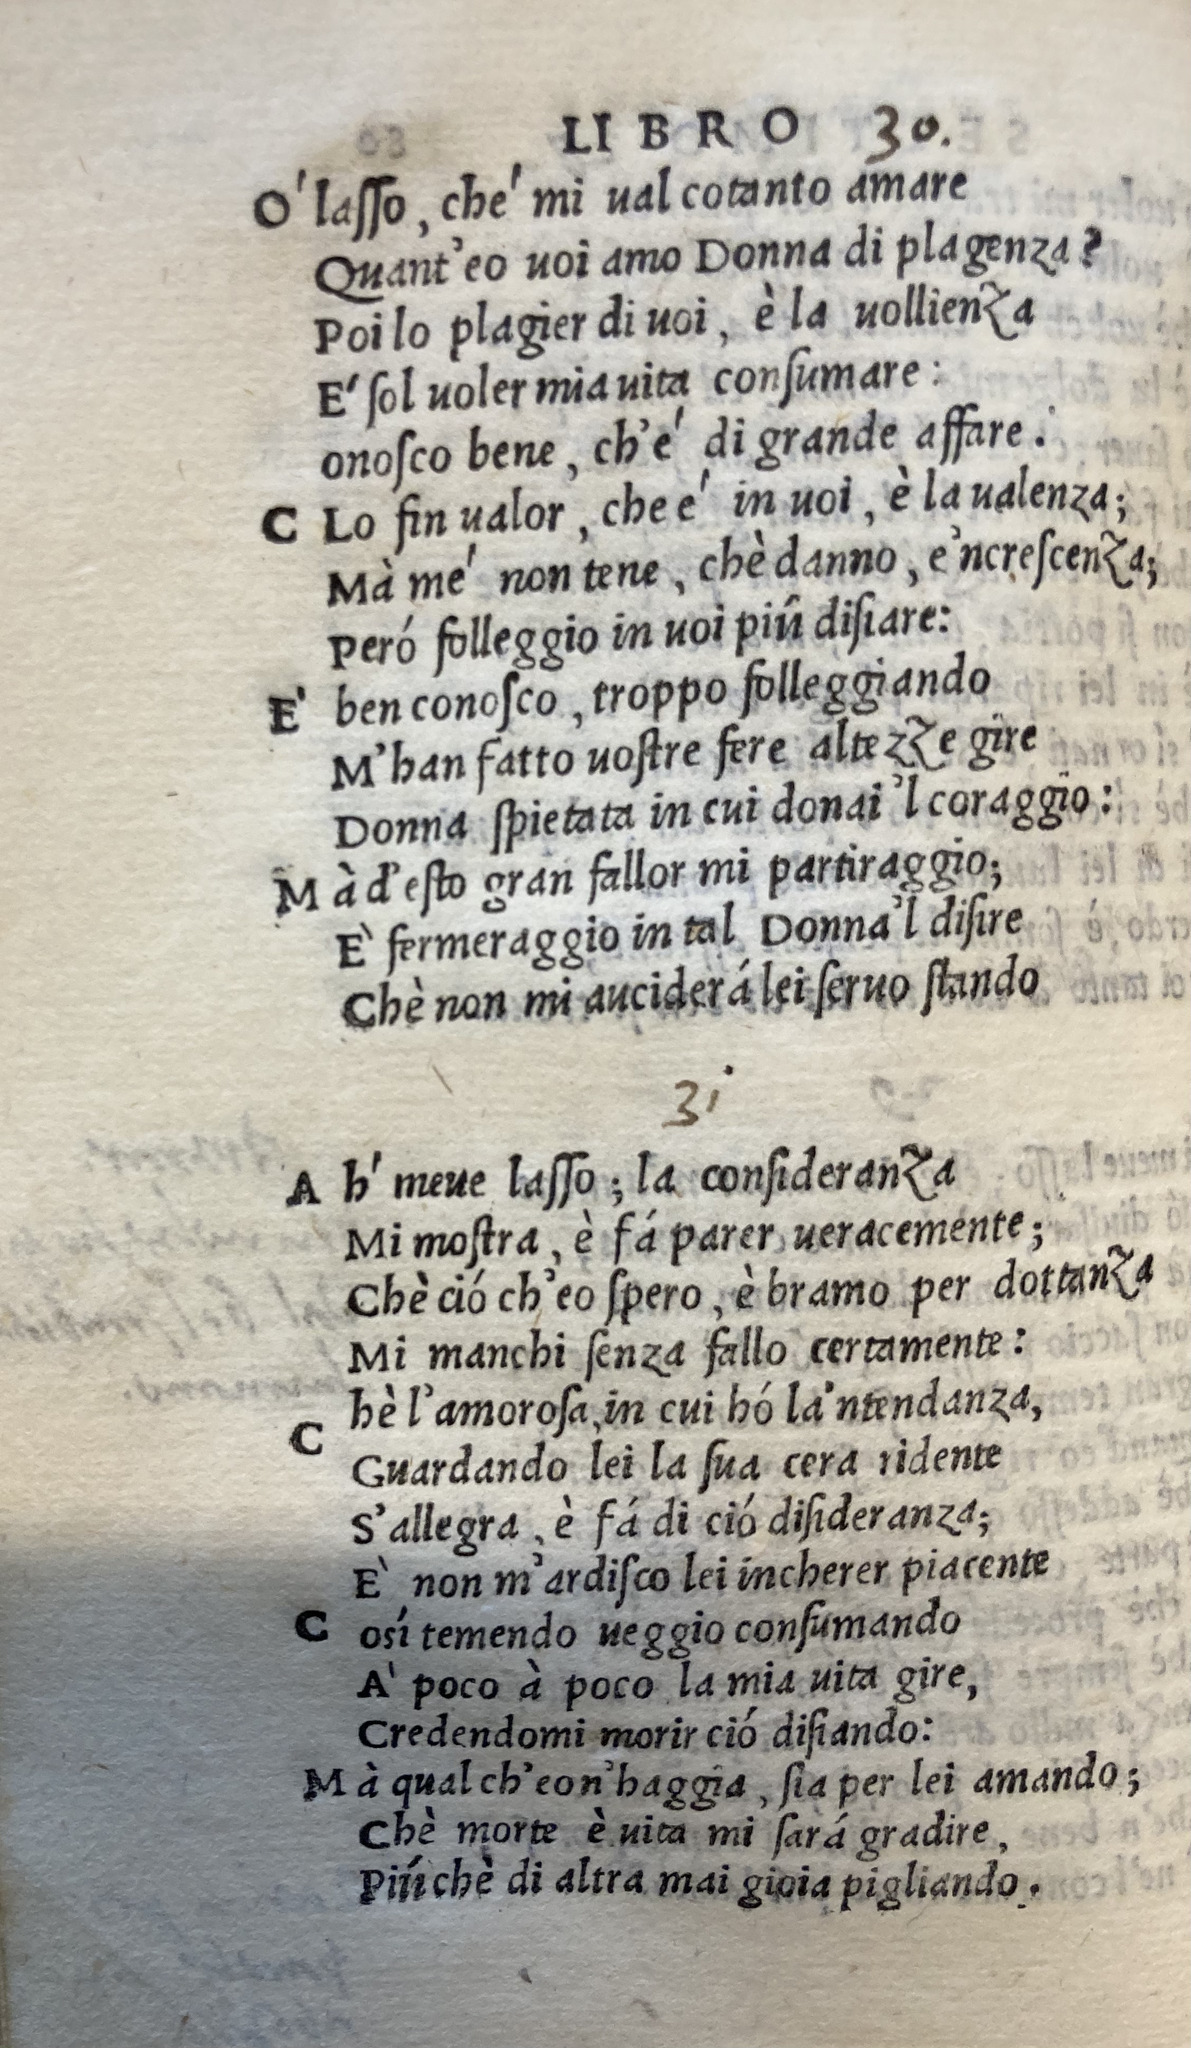 LIBRO 30.
O' lasso, che' mi ual cotanto amare
Quant'eo uoi amo Donna di plagenza?
Poi lo plagier di uoi, è la uollienza
E' sol uoler mia uita consumare:
onosco bene, ch'e' di grande affare.
C Lo fin ualor, che e' in uoi, è la ualenza;
Mà me' non tene, chè danno, e'ncrescenza;
Peró folleggio in uoi piú disiare:
E' ben conosco, troppo folleggiando
M'han fatto uostre fere altezze gire
Donna spietata in cui donai 'l coraggio:
Mà d'esto gran fallor mi partiraggio;
E' fermeraggio in tal Donna'l disire
Chè non mi auciderá lei seruo stando
3i
Ah' meue lasso; la consideranza
Mi mostra, è fá parer ueracemente;
Chè ció ch'eo spero, è bramo per dottanza
Mi manchi senza fallo certamente:
hè l'amorosa, in cui hó la'ntendanza,
C
Guardando lei la sua cera ridente
S'allegra, è fá di ció disideranza;
E' non m'ardisco lei incherer piacente
Cosí temendo ueggio consumando
A' poco à poco la mia uita gire,
Credendomi morir ció disiando:
Mà qual ch'eo n'haggia, sia per lei amando;
Chè morte è uita mi sará gradire,
Piú chè di altra mai gioia pigliando.